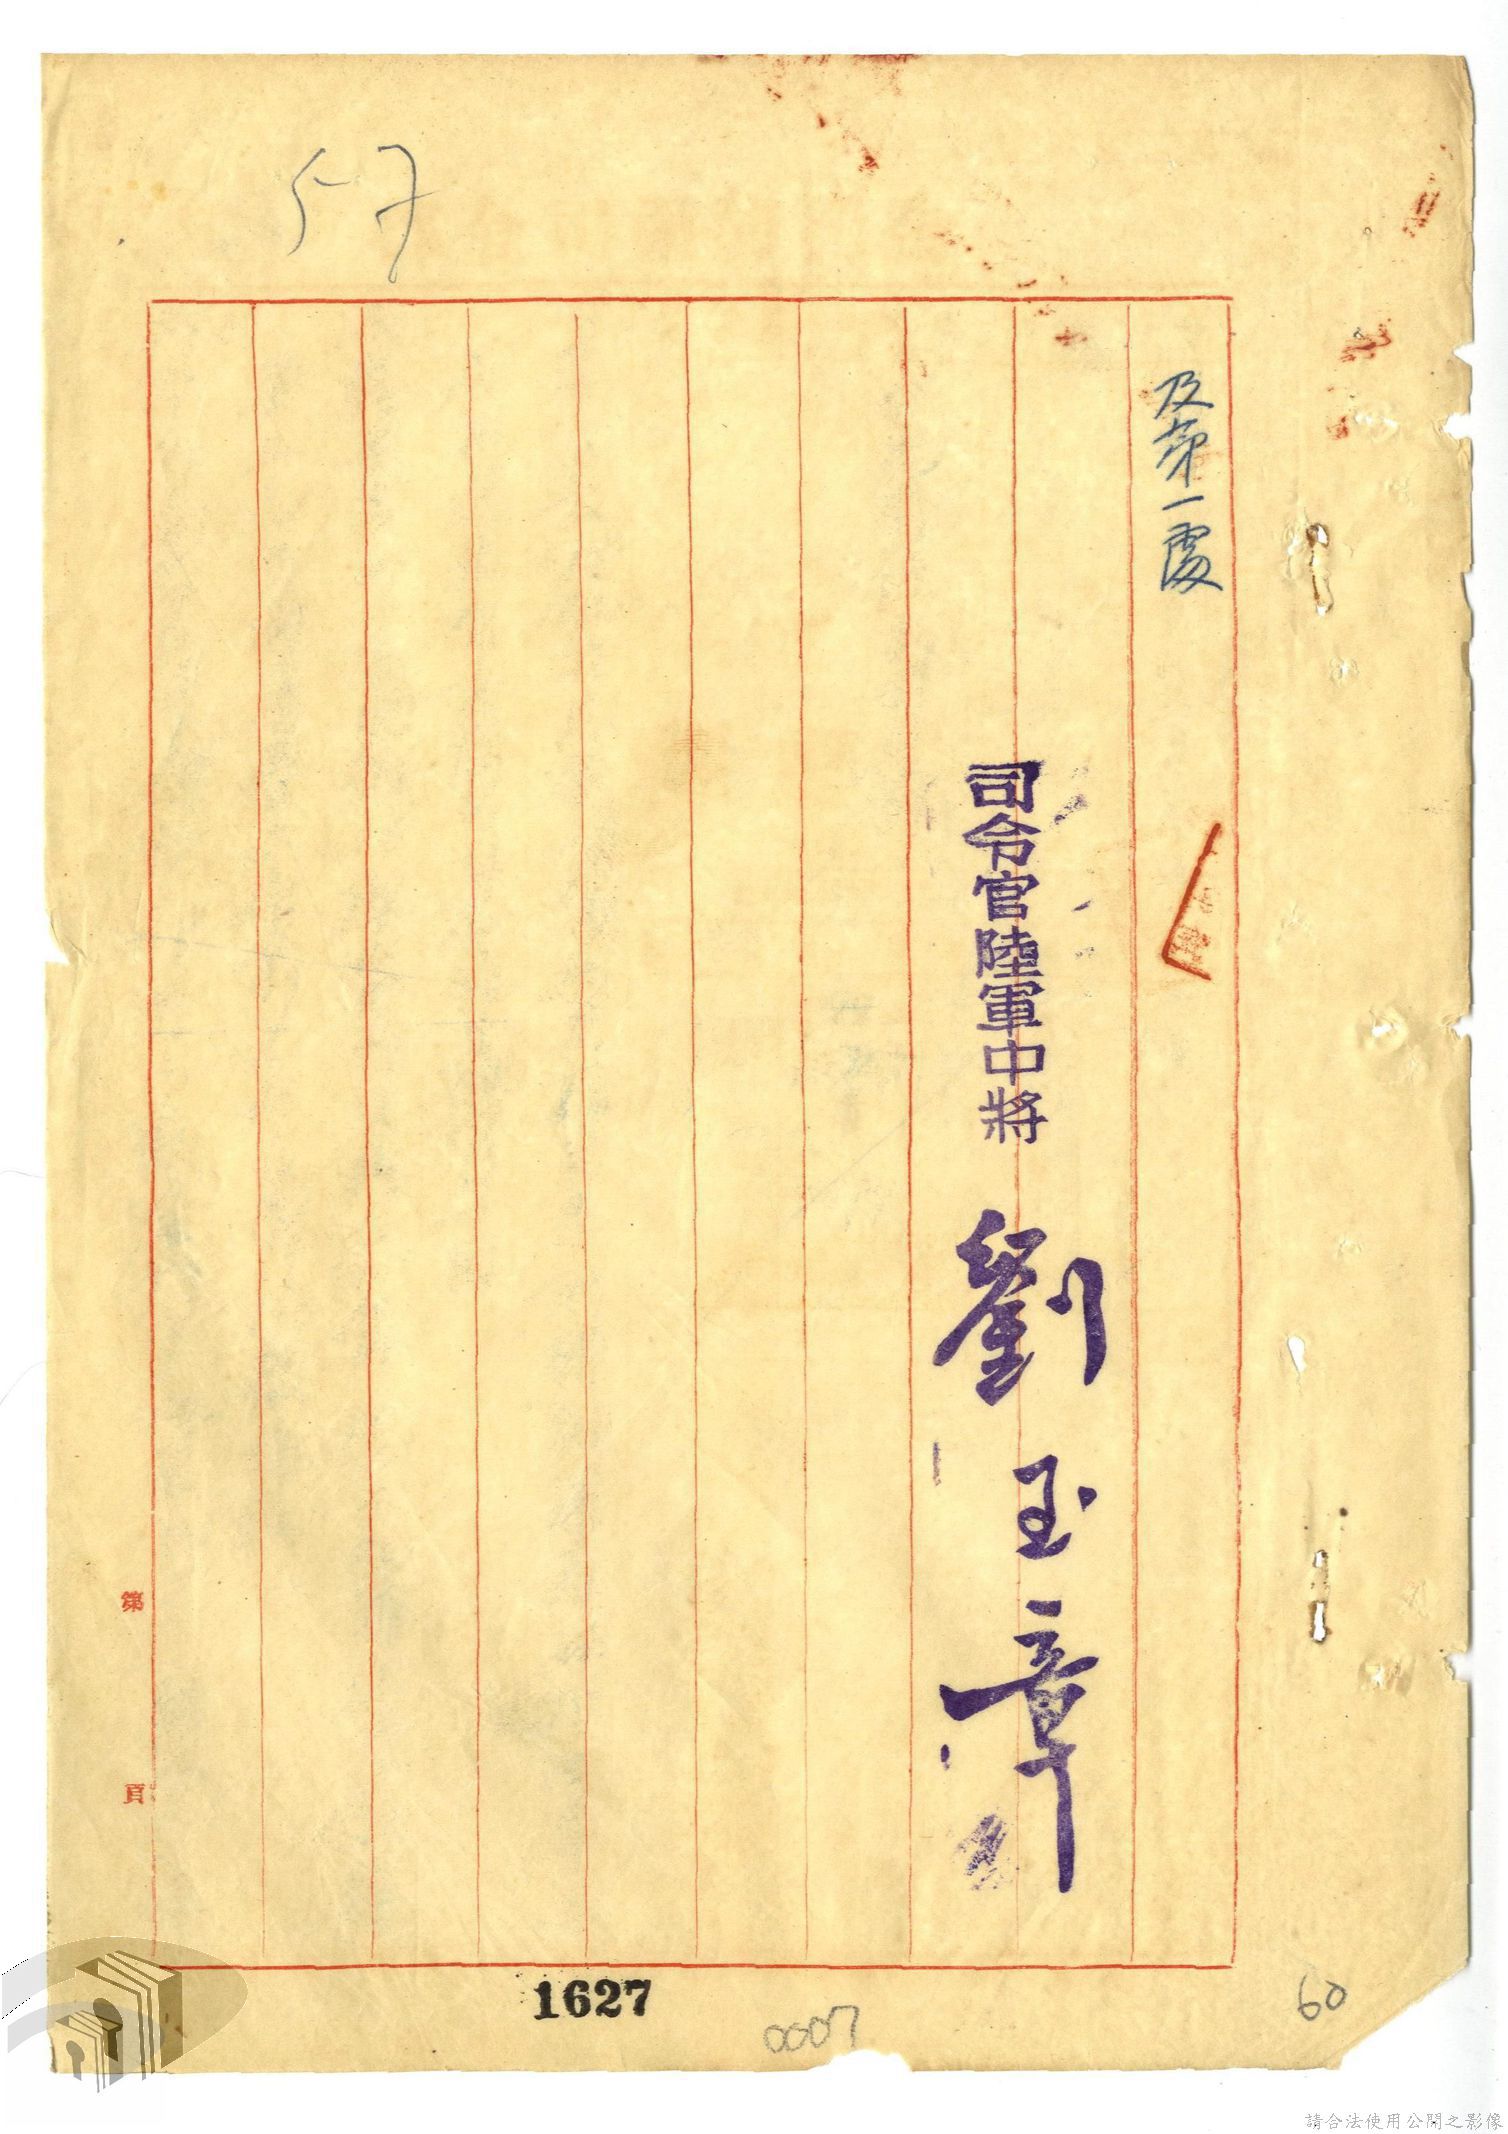 57
及第一處
司令官陸軍中將 劉玉章
第 頁
1627
0007
60
請合法使用公開之影像